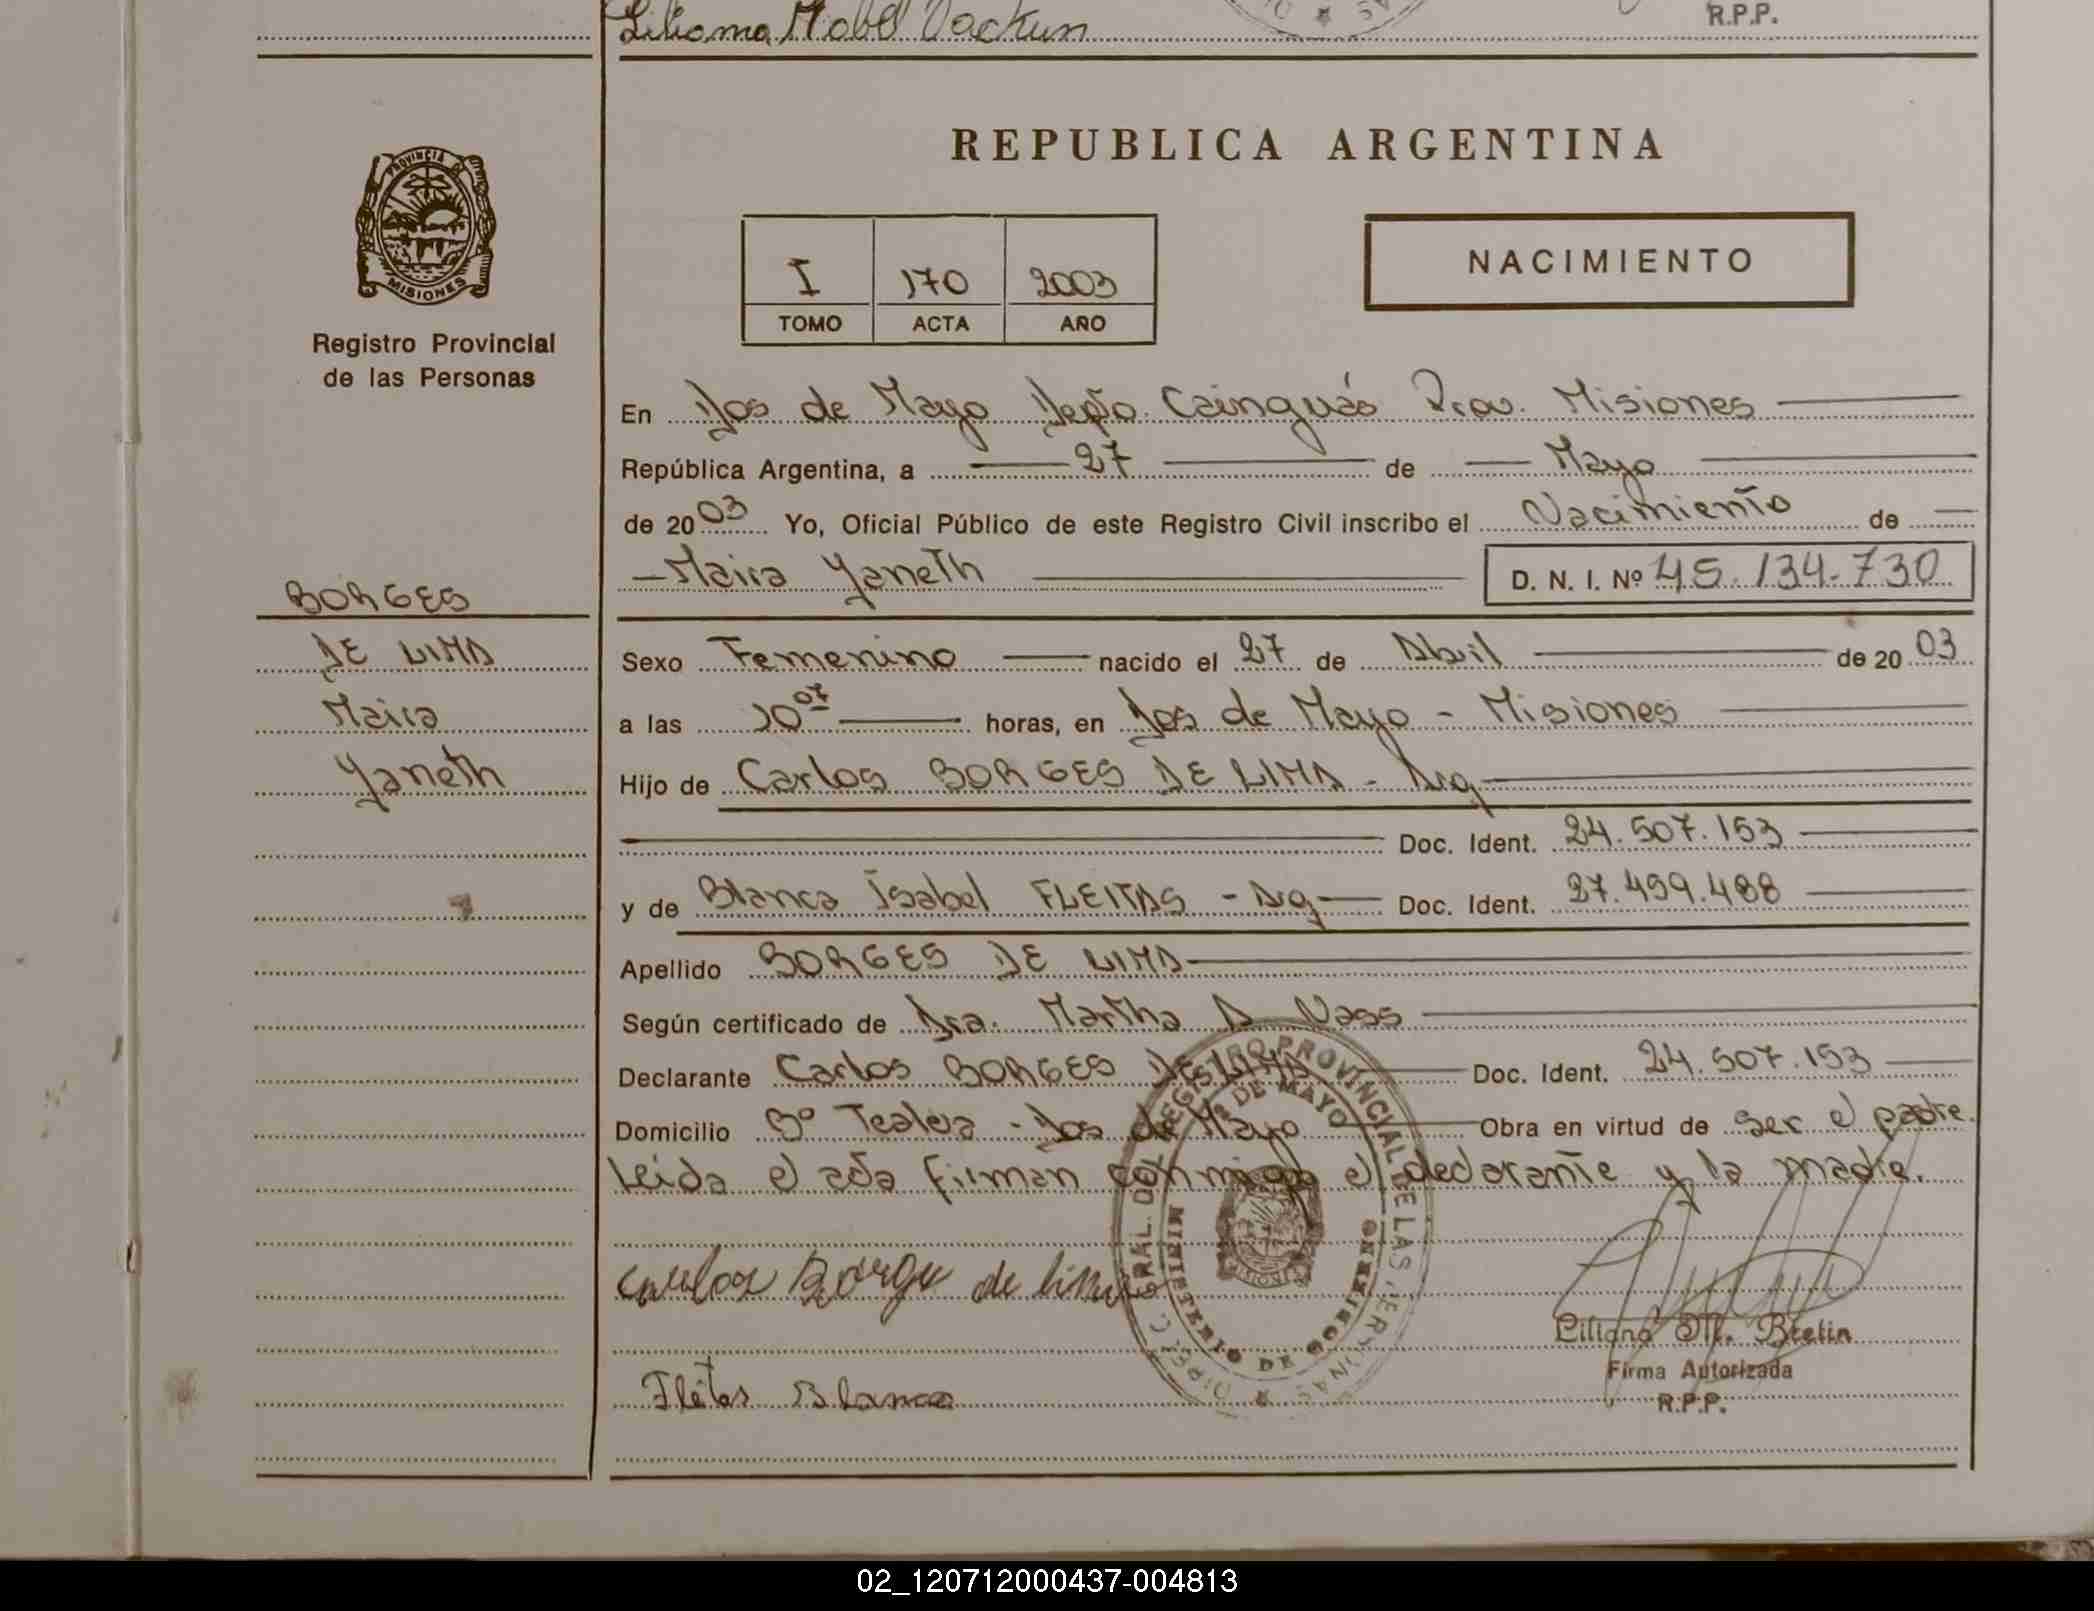 Liliana Mabel Vackun
R.P.P.
REPUBLICA ARGENTINA
PROVINCIA DE
MISIONES
Registro Provincial
de las Personas
I 170 2003
TOMO ACTA AÑO
NACIMIENTO
En Dos de Mayo Depto. Cainguás Prov. Misiones
República Argentina, a 27 de Mayo
de 2003 Yo, Oficial Público de este Registro Civil inscribo el Nacimiento de
Maira Yaneth D. N. I. Nº 45.134.730
BORGES
DE LIMA
Maira
Yaneth
Sexo Femenino nacido el 27 de Abril de 2003
a las 10 07 horas, en Dos de Mayo - Misiones
Hijo de Carlos BORGES DE LIMA - Arg
Doc. Ident. 24.507.153
y de Blanca Isabel FLEITAS - Arg Doc. Ident. 27.499.488
Apellido BORGES DE LIMA
Según certificado de Dra. Martha A. Nass
Declarante Carlos BORGES DE LIMA Doc. Ident. 24.507.153
Domicilio Bº Tealera - Dos de Mayo Obra en virtud de ser el padre.
Leída el acta firman conmigo el declarante y la madre.
DIREC. GRAL. DEL REGISTRO PROVINCIAL DE LAS PERSONAS
2 DE MAYO
MINISTERIO DE GOBIERNO
MISIONES
Carlos Borge de lima
Liliana M. Bretin
Firma Autorizada
R.P.P.
Fleitas Blanca
02_120712000437-004813